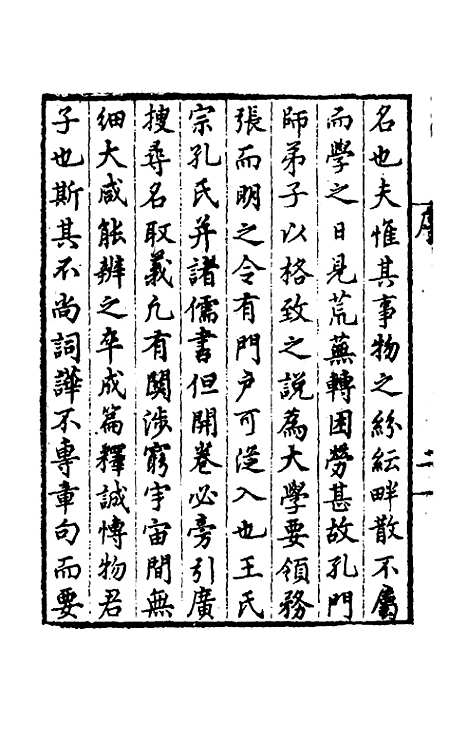 序
二
名也夫惟其事物之紛紜畔散不屬
而學之日見荒蕪轉困勞甚故孔門
師弟子以格致之說爲大學要領務
張而明之令有門戶可從入也王氏
宗孔氏并諸儒書但開卷必旁引廣
搜尋名取義凢有関涉窮宇宙間無
細大咸能辨之卒成篇釋誠博物君
子也斯其不尚詞譁不專章句而要